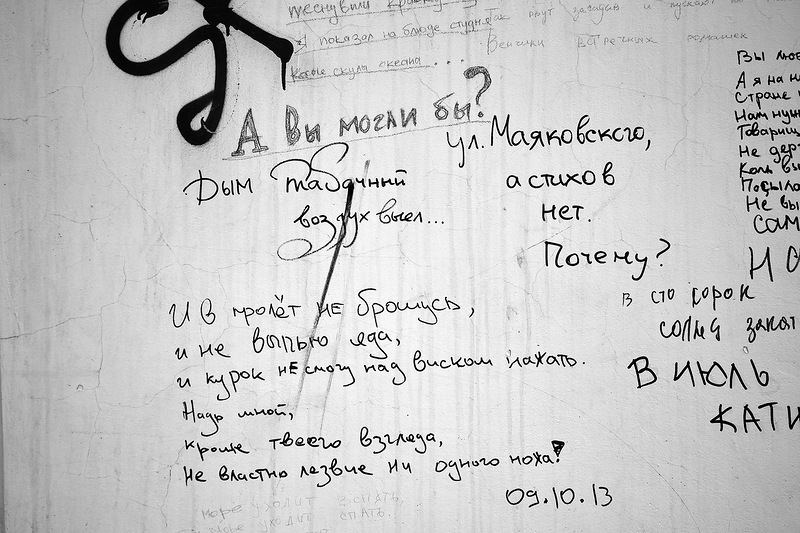 показал на блюде студня
косые скулы океана...
Встречных ромашек
А Вы могли бы?
ул. Маяковского,
а стихов
нет.
Почему?
Дым табачный
воздух выел...
И в пролёт не брошусь,
и не выпью яда,
и курок не смогу над виском нажать.
Надо мной,
кроме твоего взгляда,
не властно лезвие ни одного ножа!
09.10.13
Вы
А я на
Стране
Нам
Товарищ
Не
Коль
Не вы
в сто сорок
солнц закат
В ИЮЛЬ
КАТИ
море уходит вспять
море уходит спать.